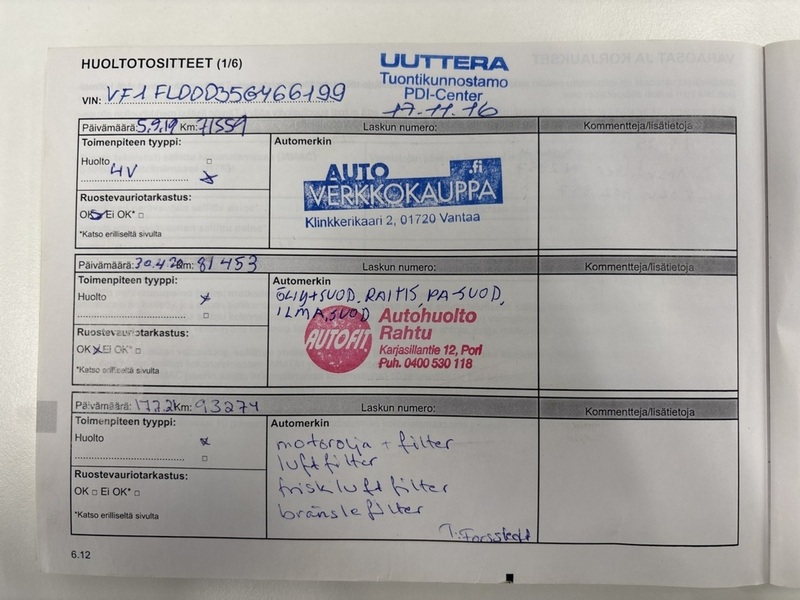 HUOLTOTOSITTEET (1/6)
UUTTERA
Tuontikunnostamo
PDI-Center
17.11.16
VIN: VF1FL000356466199
Päivämäärä: 5.9.19 Km: 71559 Laskun numero: Kommentteja/lisätietoja
Toimenpiteen tyyppi: Automerkin
Huolto
HV
AUTO .fi
VERKKOKAUPPA
Klinkkerikaari 2, 01720 Vantaa
Ruostevauriotarkastus:
OK Ei OK*
*Katso erilliseltä sivulta
Päivämäärä: 30.4.20 Km: 81453 Laskun numero: Kommentteja/lisätietoja
Toimenpiteen tyyppi: Automerkin
Huolto
ÖLJY+SUOD, RAITIS, PA-SUOD,
ILMA.SUOD
AUTOFIT
Autohuolto
Rahtu
Karjasillantie 12, Pori
Puh. 0400 530 118
Ruostevauriotarkastus:
OK Ei OK*
*Katso erilliseltä sivulta
Päivämäärä: Km: 93274 Laskun numero: Kommentteja/lisätietoja
Toimenpiteen tyyppi: Automerkin
Huolto
motorolja + filter
luftfilter
friskluftfilter
bränslefilter
T. Forsstedt
Ruostevauriotarkastus:
OK Ei OK*
*Katso erilliseltä sivulta
6.12